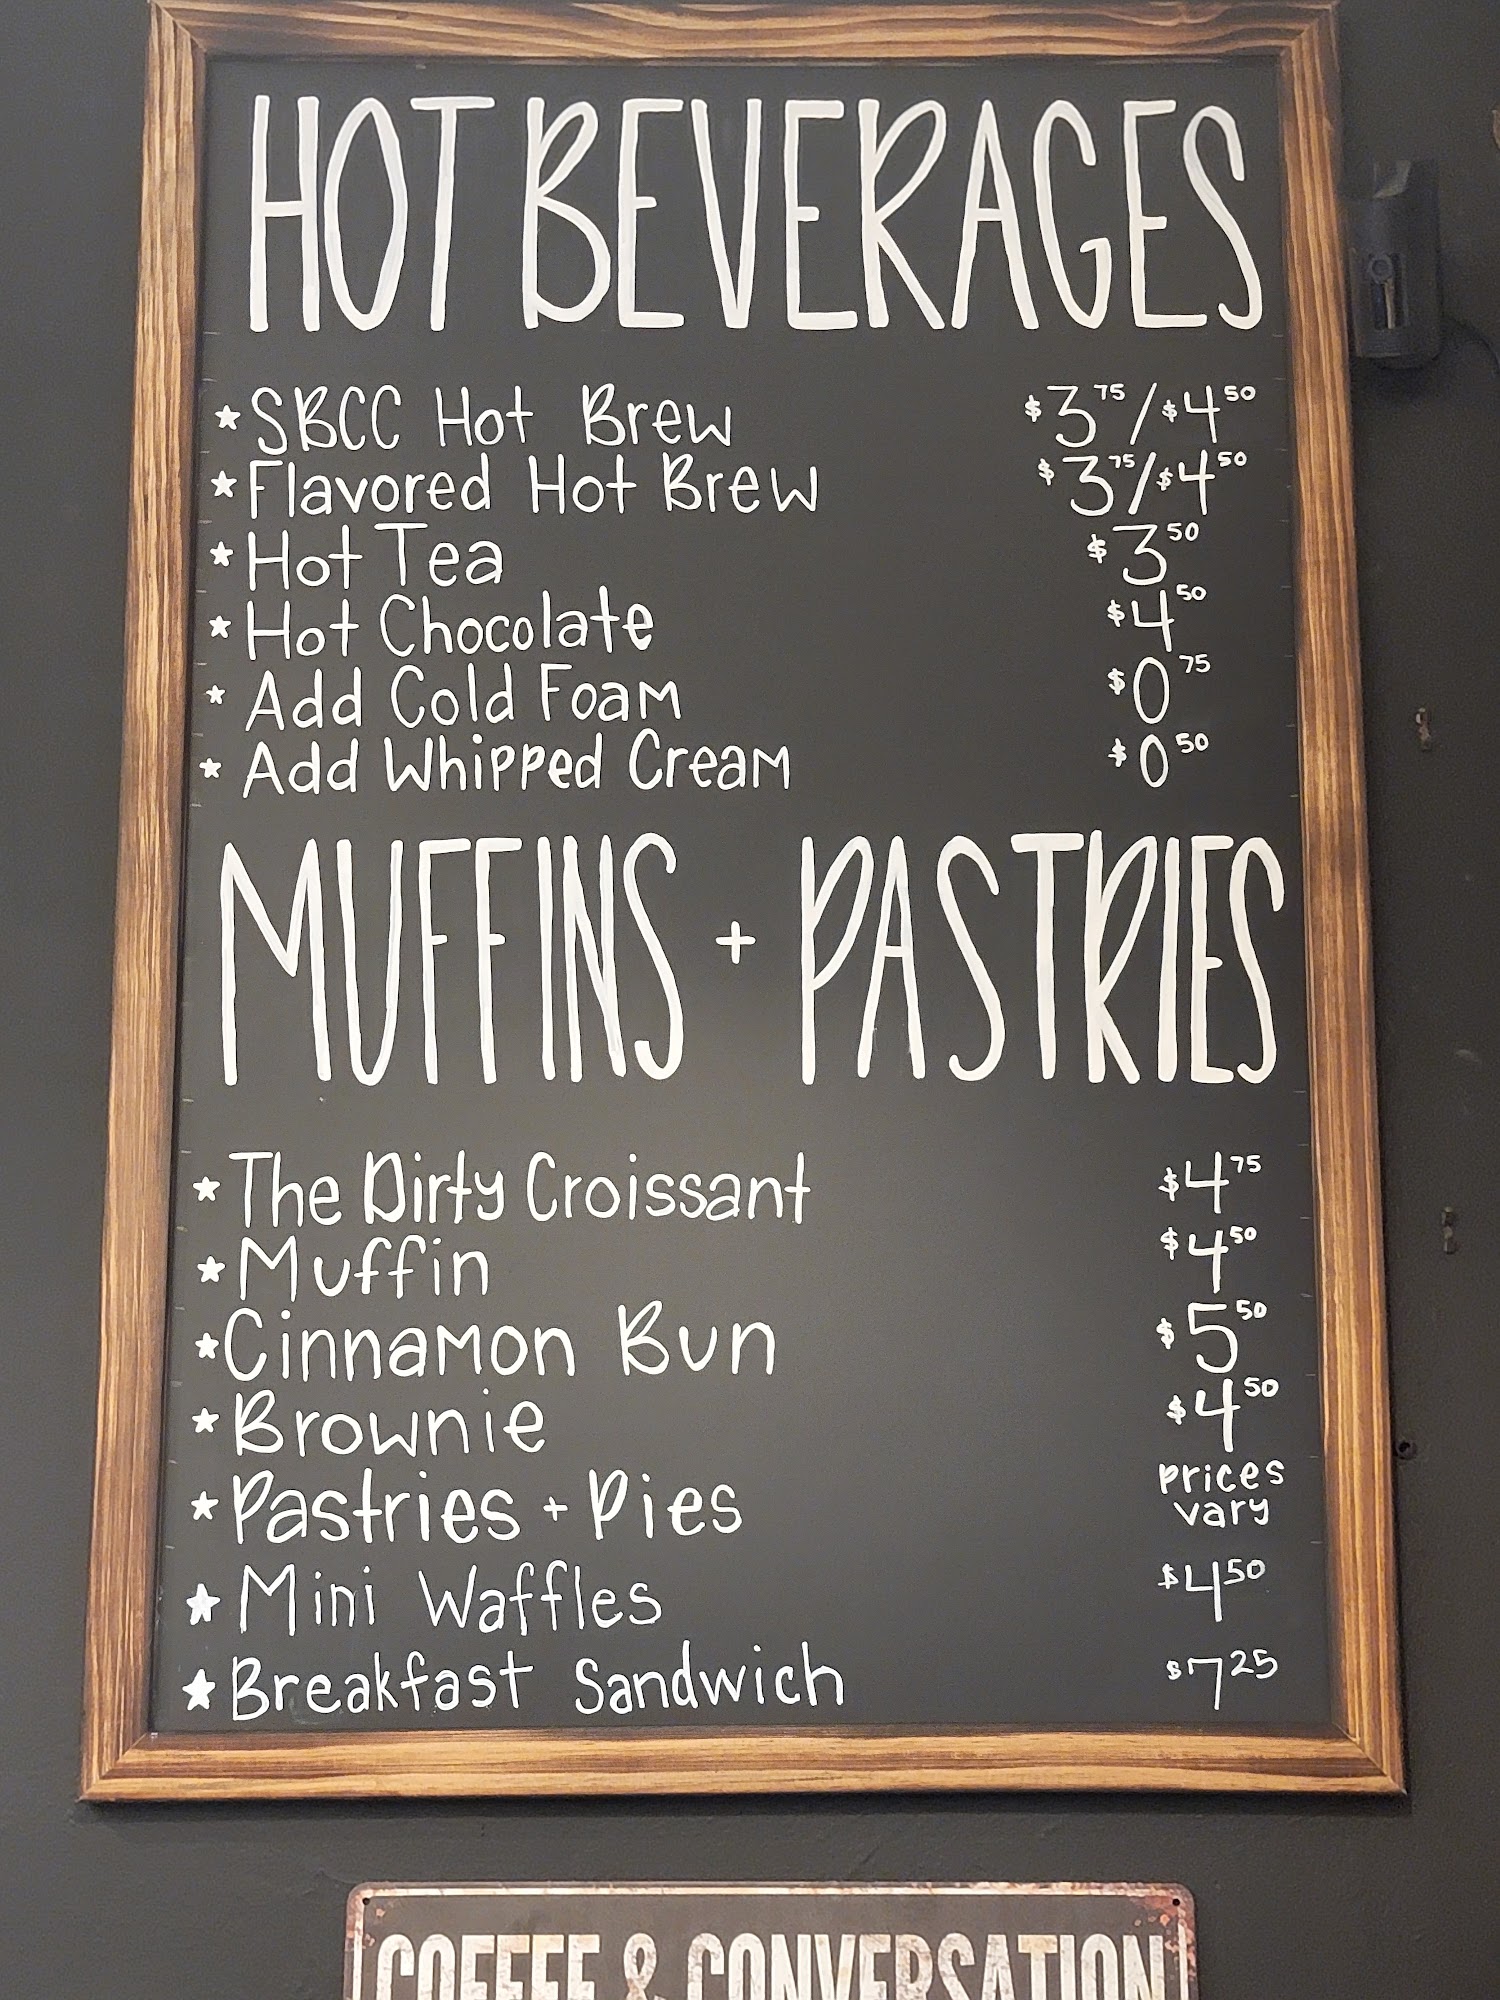 HOT BEVERAGES
★ SBCC Hot Brew $3.75/$4.50
★ Flavored Hot Brew $3.75/$4.50
★ Hot Tea $3.50
★ Hot Chocolate $4.50
★ Add Cold Foam $0.75
★ Add Whipped Cream $0.50
MUFFINS + PASTRIES
★ The Dirty Croissant $4.75
★ Muffin $4.50
★ Cinnamon Bun $5.50
★ Brownie $4.50
★ Pastries + Pies prices vary
★ Mini Waffles $4.50
★ Breakfast Sandwich $7.25
COFFEE & CONVERSATION